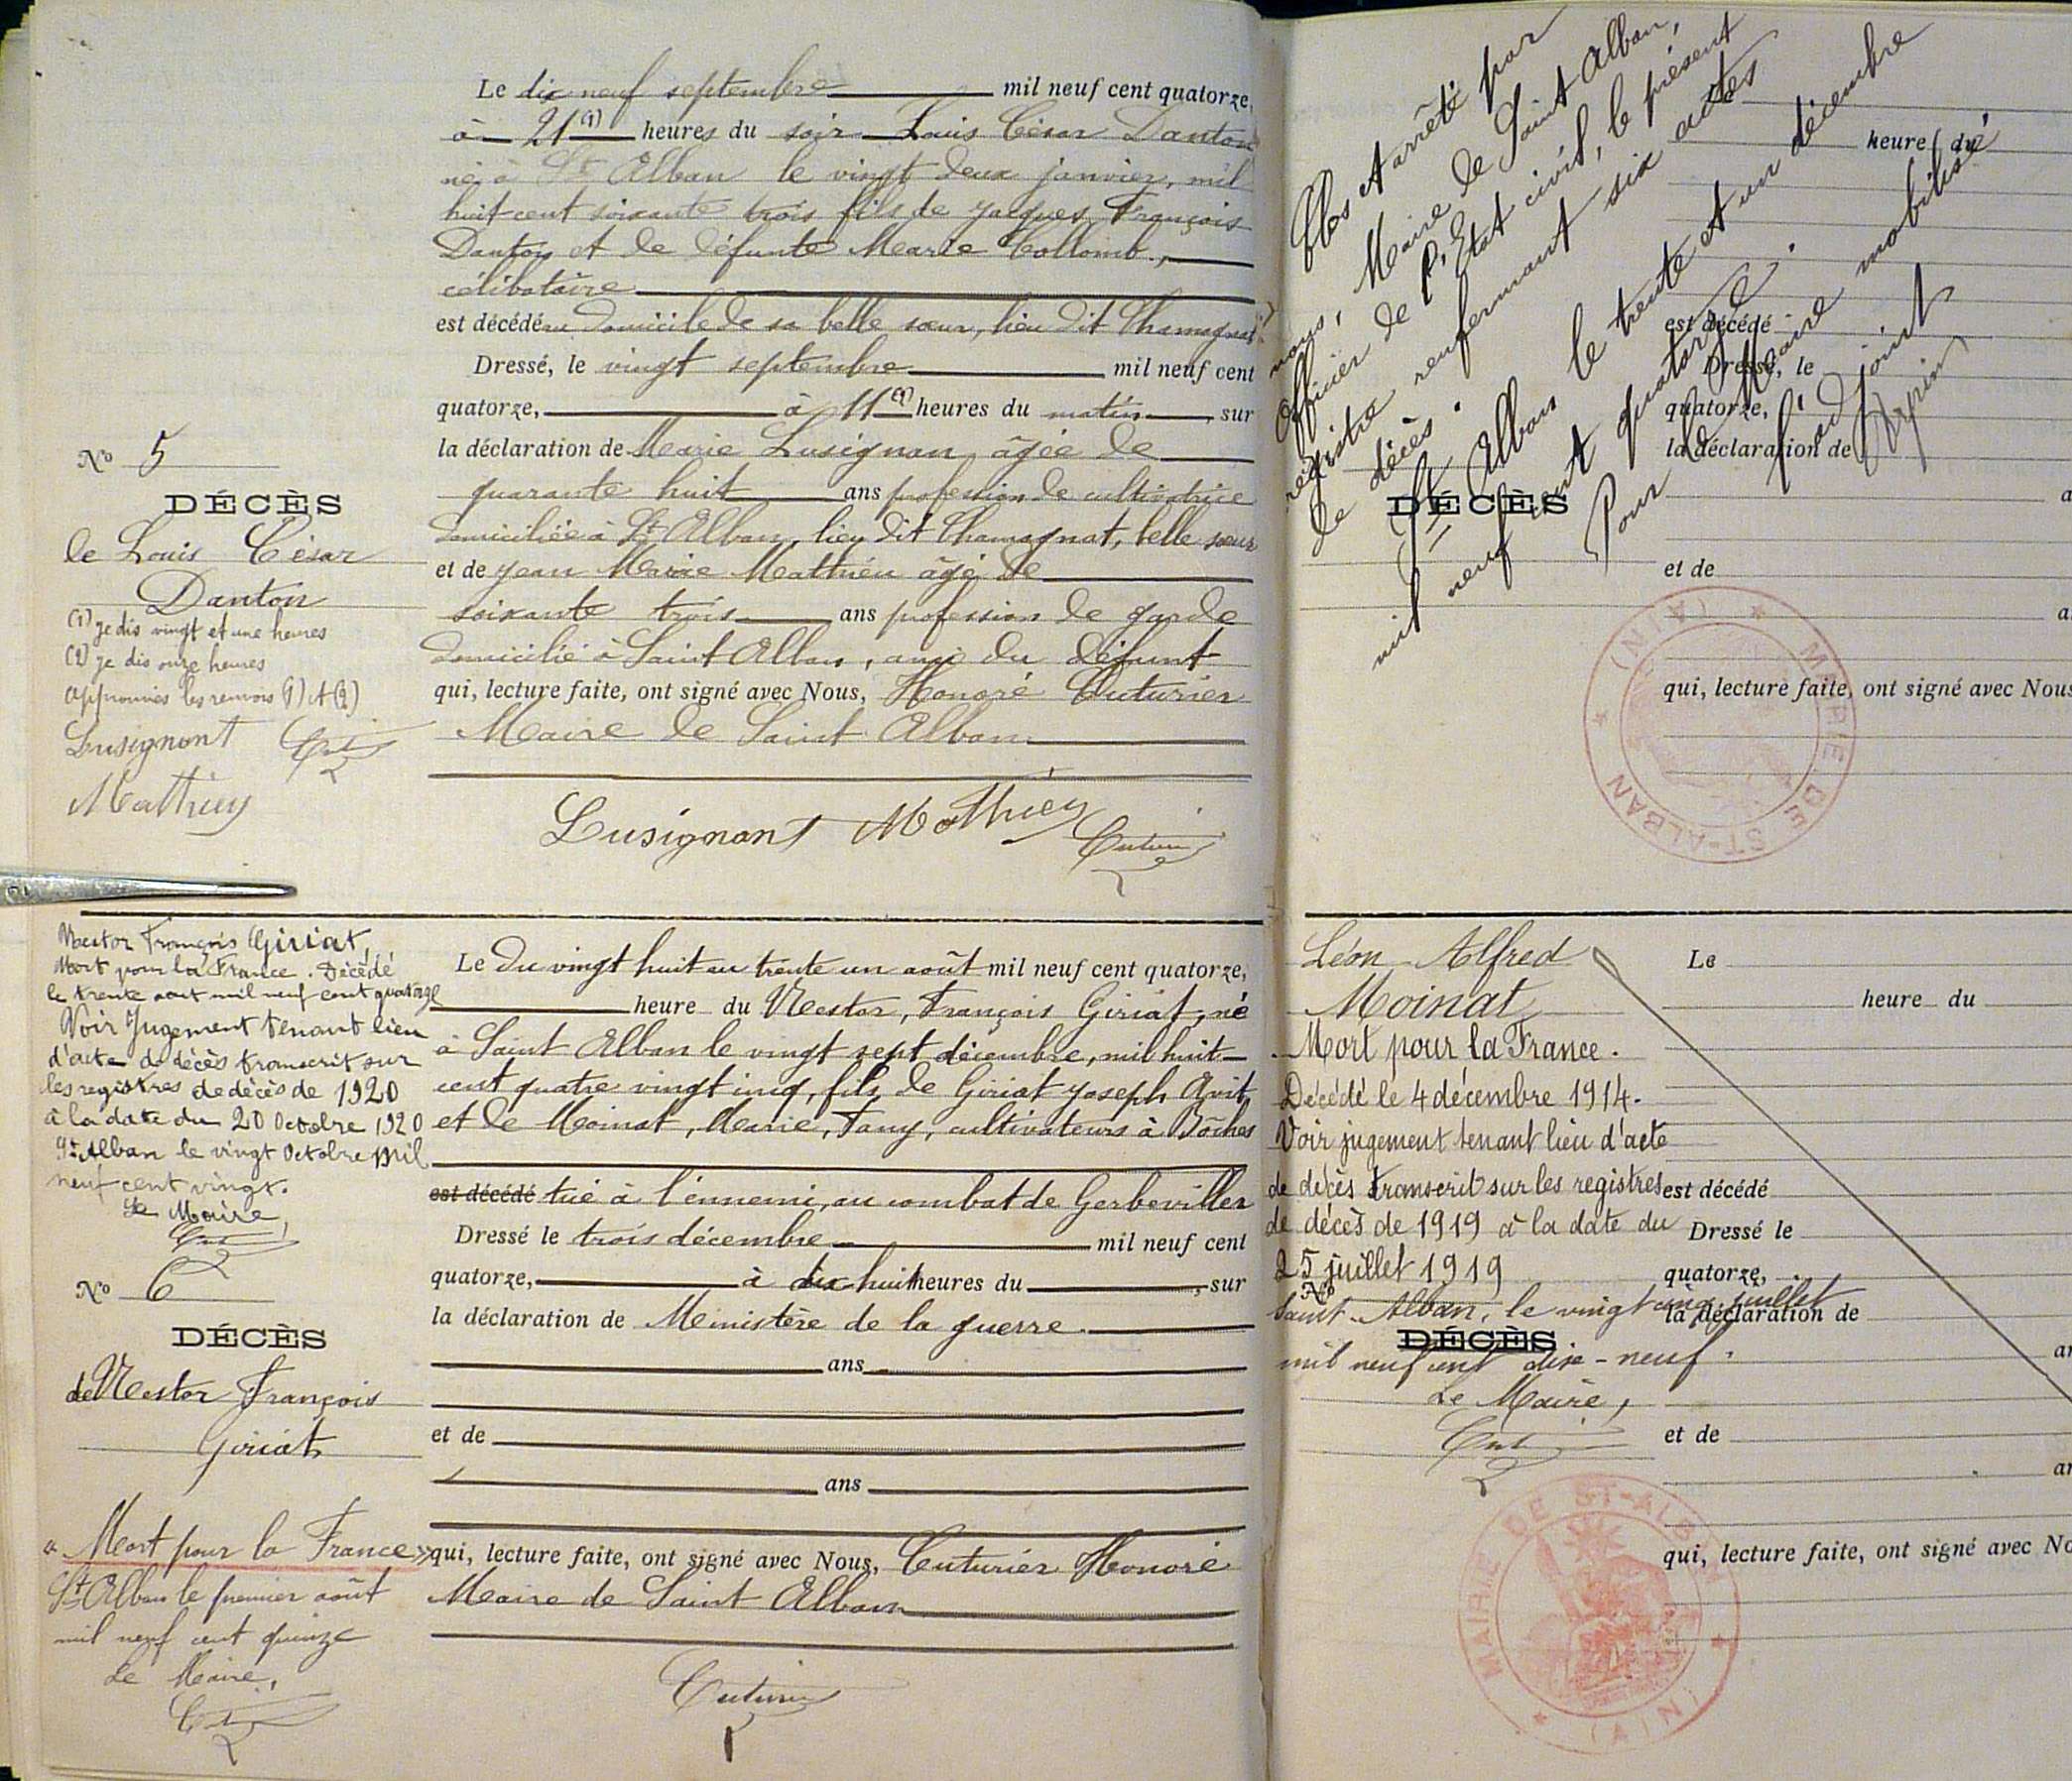 Le dix neuf septembre mil neuf cent quatorze,
à 21 (1) heures du soir Louis César Danton
né à St Alban le vingt deux janvier, mil
huit cent soixante trois fils de Jacques, François
Danton et de défunte Marie Collomb,
célibataire
est décédé au domicile de sa belle sœur, lieu dit Chamagnat
Dressé, le vingt septembre mil neuf cent
quatorze, à 11 (2) heures du matin, sur
la déclaration de Marie Lusignan, âgée de
quarante huit ans profession de cultivatrice
domiciliée à St Alban, lieu dit Chamagnat, belle sœur
et de Jean Marie Mathieu âgé de
soixante trois ans profession de garde
domicilié à Saint Alban, ami du défunt
qui, lecture faite, ont signé avec Nous, Honoré Cuturier
Maire de Saint Alban
Lusignant Mathieu Cuturier
No 5
DÉCÈS
de Louis César
Danton
(1) je dis vingt et une heures
(2) je dis onze heures
approuvés les renvois (1) et (2)
Lusignant
Mathieu
Nestor François Giriat,
Mort pour la France. Décédé
le trente août mil neuf cent quatorze
Voir Jugement tenant lieu
d'acte de décès transcrit sur
les registres de décès de 1920
à la date du 20 Octobre 1920
St Alban le vingt Octobre mil
neuf cent vingt.
Le Maire,
No 6
DÉCÈS
de Nestor François
Giriat
« Mort pour la France »
St Alban le premier août
mil neuf cent quinze
Le Maire,
Le du vingt huit au trente un août mil neuf cent quatorze,
heure du Nestor, François Giriat, né
à Saint Alban le vingt sept décembre, mil huit
cent quatre vingt cinq, fils de Giriat Joseph Avit
et de Moinat, Marie, Fany, cultivateurs à Bôches
est décédé tué à l'ennemi, au combat de Gerbeviller
Dressé le trois décembre mil neuf cent
quatorze, à dix huit heures du, sur
la déclaration de Ministère de la guerre
ans
et de
ans
qui, lecture faite, ont signé avec Nous, Cuturier Honoré
Maire de Saint Alban
Cuturier
Clos et arrêté par
nous, Maire de Saint Alban,
Officier de l'État civil, le présent
registre renfermant six actes
de décès.
St Alban le trente et un décembre
mil neuf cent quatorze.
Pour le Maire mobilisé
l'adjoint
heure du
est décédé
Dressé, le
quatorze,
la déclaration de
DÉCÈS
et de
qui, lecture faite, ont signé avec Nous
MAIRIE DE ST-ALBAN
(AIN)
Léon Alfred
Moinat
Mort pour la France.
Décédé le 4 décembre 1914.
Voir jugement tenant lieu d'acte
de décès transcrit sur les registres
de décès de 1919 à la date du
25 juillet 1919
No
Saint-Alban, le vingt cinq juillet
DÉCÈS
mil neuf cent dix-neuf.
Le Maire,
Le
heure du
est décédé
Dressé le
quatorze,
la déclaration de
et de
qui, lecture faite, ont signé avec No
MAIRIE DE ST-ALBAN
(AIN)